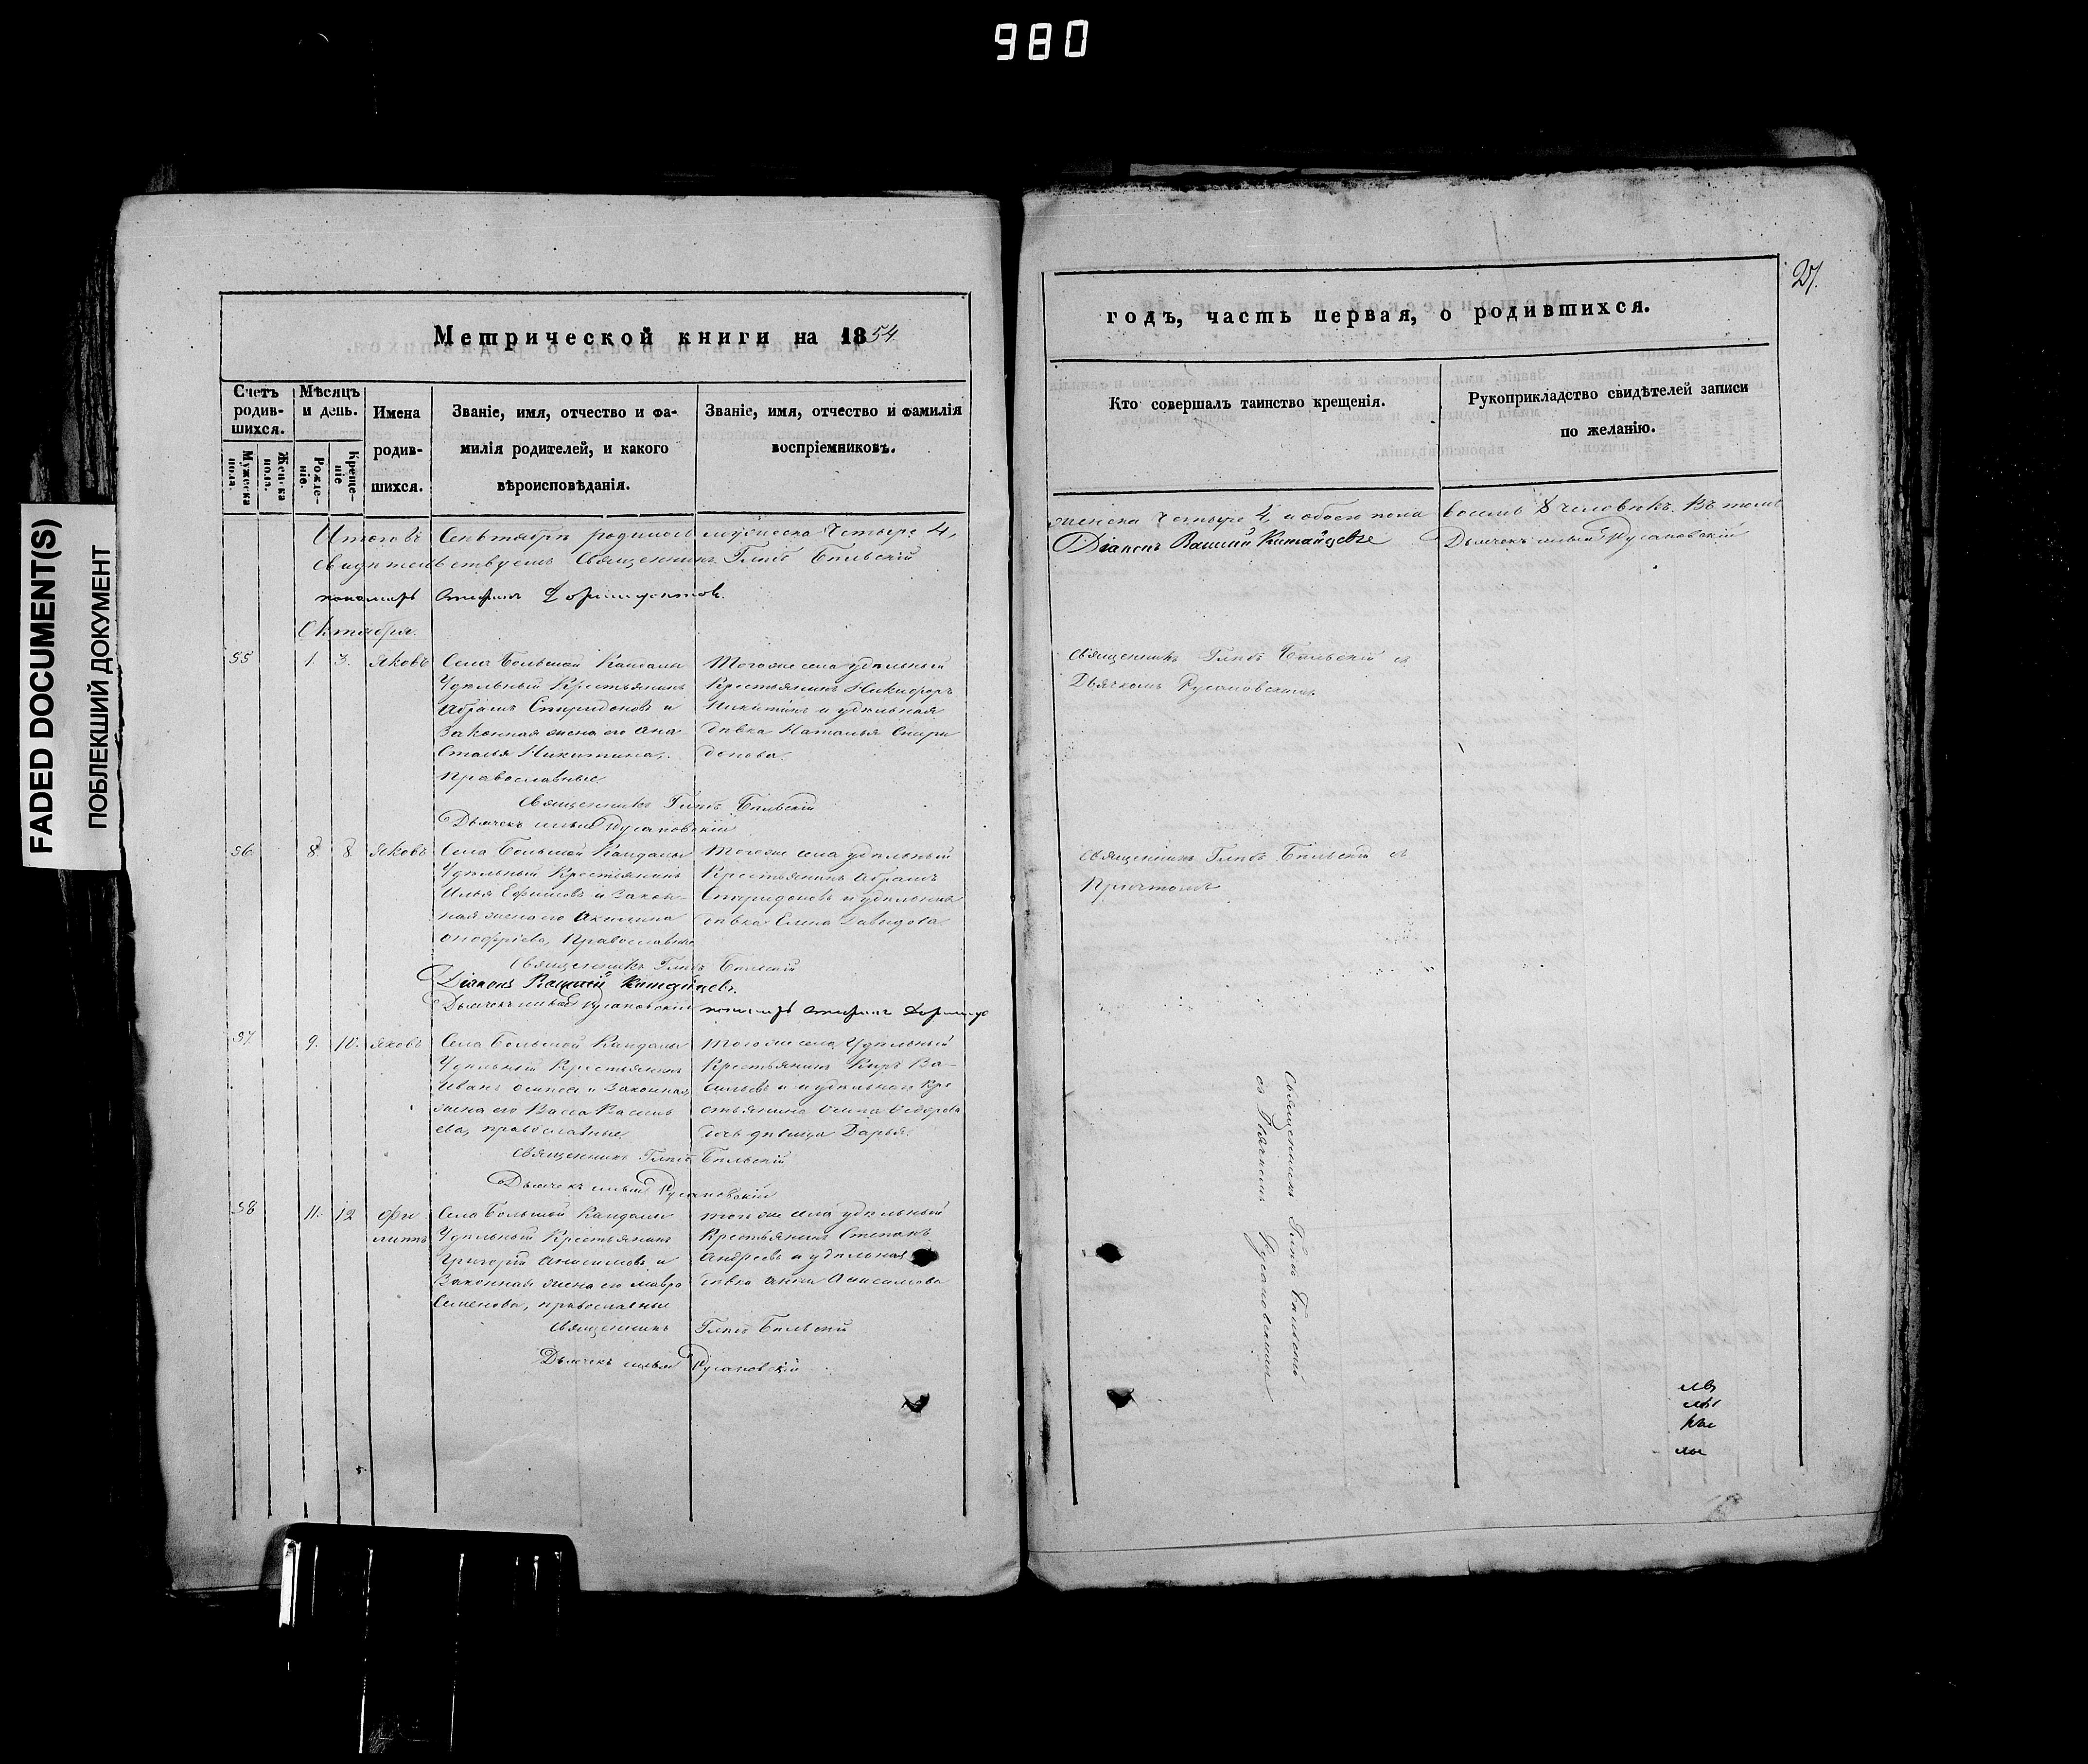 980
FADED DOCUMENT(S)
ПОБЛЕКШИЙ ДОКУМЕНТ
Метрической книги на 1854
Счетъ родив-шихся.
Мужеска пола.
Женска пола.
Мѣсяцъ и день.
Рожде-ніе.
Креще-ніе
Имена
родив-
шихся.
Званіе, имя, отчество и фа-
милія родителей, и какого
вѣроисповѣданія.
Званіе, имя, отчество и фамилія
воспріемниковъ.
Итого въ Сентябрѣ родилось мужеска четыре 4,
свидѣтельствуемъ Священникъ Глѣбъ Бѣльскій
пономарь Стефанъ
Октября.
55 1. 3. Яковъ
Села Большой Кандалы
Удѣльный Крестьянинъ
Абрамъ Спиридоновъ и
Законная жена его Ана
стасья Никитина,
православные
Тогоже села удѣльный
Крестьянинъ Никифоръ
Никитинъ и удѣльная
дѣвка Наталья Спири
донова.
Священникъ Глѣбъ Бѣльскій
Дьячекъ Русановскій
56 8 8 Яковъ
Села Большой Кандалы
Удѣльный Крестьянинъ
Илья Ефимовъ и Закон-
ная жена его Акилина
Онофріева, Православные
Тогоже села удѣльный
Крестьянинъ Абрамъ
Спиридоновъ и удѣльная
дѣвка Елена Давыдова.
Священникъ Глѣбъ Бѣльскій
Діаконъ Василій Китайцевъ.
Дьячекъ Русановскій пономарь Стефанъ
57 9. 10. Яковъ
Села Большой Кандалы
Удѣльный Крестьянинъ
Иванъ Осиповъ и Законная
жена его Васса Василь
ева, православные
Тогоже села Удѣльный
Крестьянинъ Киръ Ва-
сильевъ и удѣльнаго Кре
стьянина Осипа Федорова
дочь дѣвица Дарья.
Священникъ Глѣбъ Бѣльскій
Дьячекъ Русановскій
58 11. 12 Фи
липпъ
Села Большой Кандалы
Удѣльный Крестьянинъ
Григорій Анисимовъ и
Законная жена его Мавра
Семенова, православные
Тогоже села удѣльный
Крестьянинъ Степанъ
Андреевъ и удѣльная
дѣвка Анна Анисимова
Священникъ Глѣбъ Бѣльскій
Дьячекъ Русановскій
27.
годъ, часть первая, о родившихся.
Кто совершалъ таинство крещенія.
Рукоприкладство свидѣтелей записи
по желанію.
женска четыре 4, и обоего пола восемь 8 человѣкъ. Въ томъ
Діаконъ Василій Китайцевъ Дьячекъ Русановскій
Священникъ Глѣбъ Бѣльскій съ
Дьячкомъ Русановскимъ.
Священникъ Глѣбъ Бѣльскій съ
Причтомъ
Священникъ Глѣбъ Бѣльскій
съ Дьячкомъ Русановскимъ